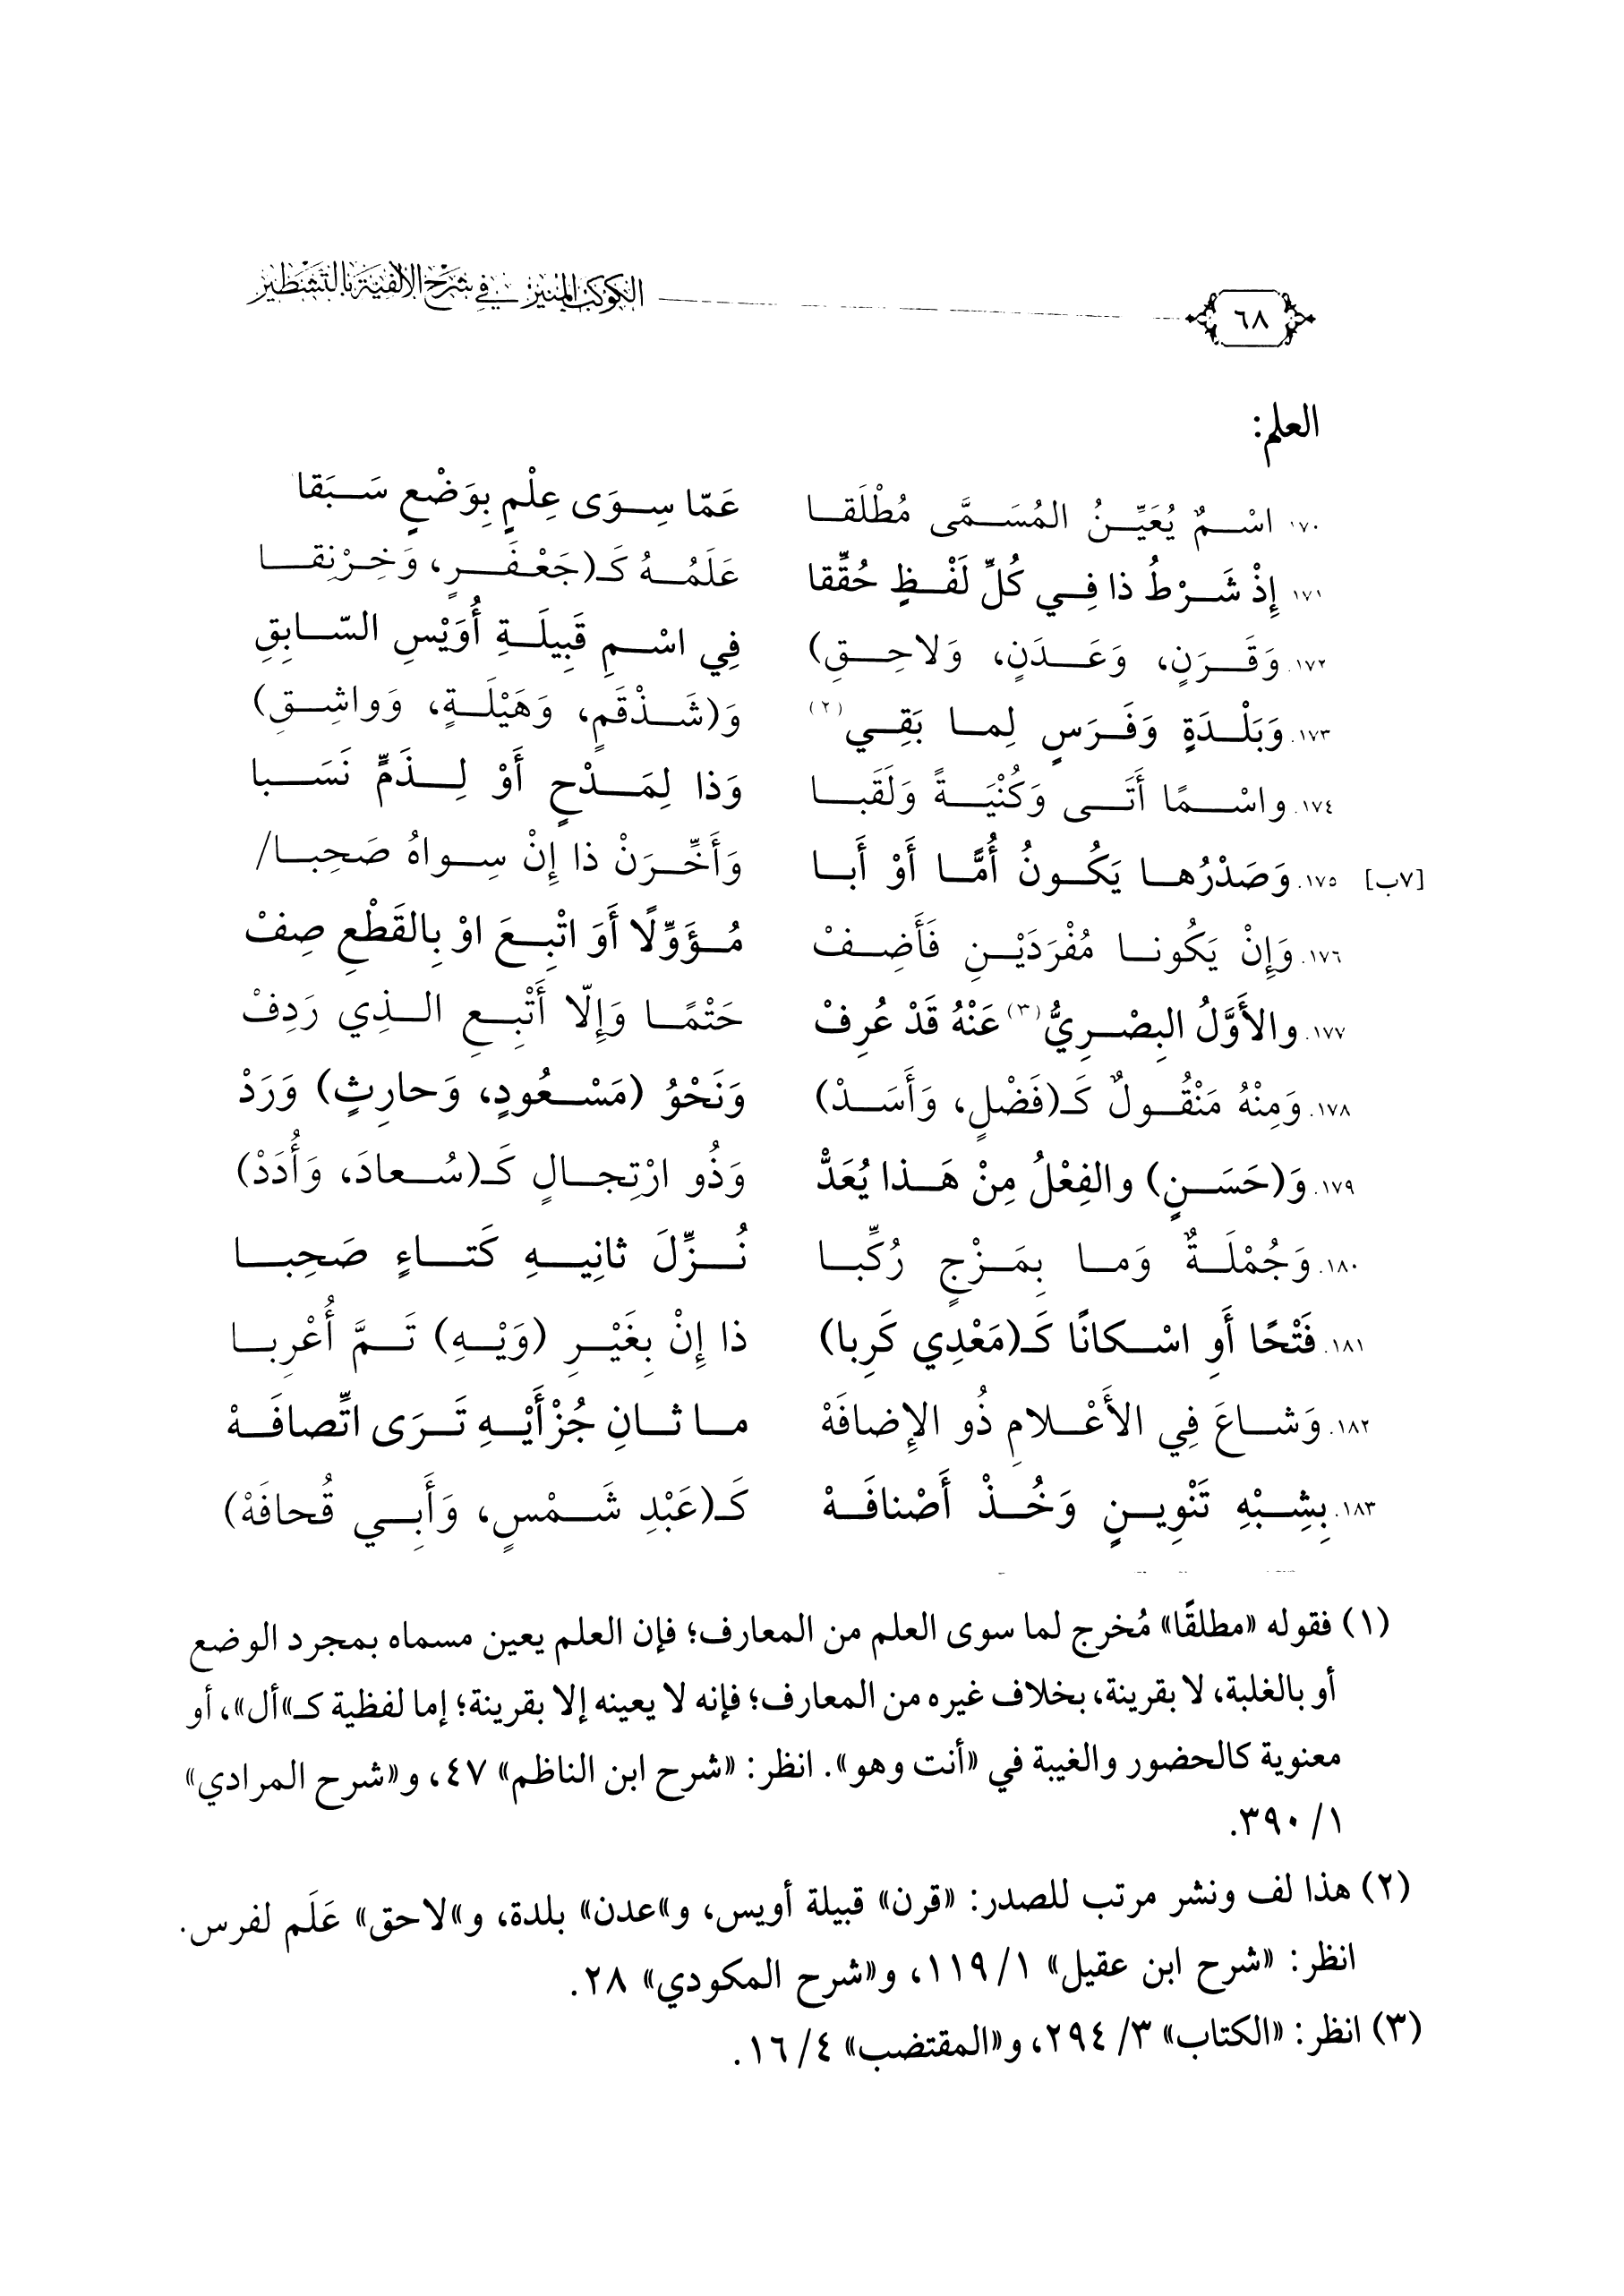 ٦٨ الكوكب المنير في شرح الألفية بالتشطير
العلم:
١٧٠. اسْمٌ يُعَيِّنُ المُسَمَّى مُطْلَقا عَمّا سِوَى عِلْمٍ بِوَضْعٍ سَبَقا
١٧١. إِذْ شَرْطُ ذا فِي كُلِّ لَفْظٍ حُقِّقا عَلَمُهُ كَـ(جَعْفَرٍ، وَخِرْنِقا
١٧٢. وَقَرَنٍ، وَعَدَنٍ، وَلاحِقِ) فِي اسْمِ قَبِيلَةِ أُوَيْسِ السّابِقِ
١٧٣. وَبَلْدَةٍ وَفَرَسٍ لِما بَقِي(٢) وَ(شَذْقَمٍ، وَهَيْلَةٍ، وَواشِقِ)
١٧٤. واسْمًا أَتَى وَكُنْيَةً وَلَقَبا وَذا لِمَدْحٍ أَوْ لِذَمٍّ نَسَبا
[٧ب] ١٧٥. وَصَدْرُها يَكُونُ أُمًّا أَوْ أَبا وَأَخِّرَنْ ذا إِنْ سِواهُ صَحِبا/
١٧٦. وَإِنْ يَكُونا مُفْرَدَيْنِ فَأَضِفْ مُؤَوِّلًا أَوَ اتْبِعَ اوْ بِالقَطْعِ صِفْ
١٧٧. والأَوَّلُ البِصْرِيُّ(٣) عَنْهُ قَدْ عُرِفْ حَتْمًا وَإِلّا أَتْبِعِ الذِي رَدِفْ
١٧٨. وَمِنْهُ مَنْقُولٌ كَـ(فَضْلٍ، وَأَسَدْ) وَنَحْوُ (مَسْعُودٍ، وَحارِثٍ) وَرَدْ
١٧٩. وَ(حَسَنٍ) والفِعْلُ مِنْ هَذا يُعَدْ وَذُو ارْتِجالٍ كَـ(سُعادَ، وَأُدَدْ)
١٨٠. وَجُمْلَةٌ وَما بِمَزْجٍ رُكِّبا نُزِّلَ ثانِيهِ كَتاءٍ صَحِبا
١٨١. فَتْحًا أَوِ اسْكانًا كَـ(مَعْدِي كَرِبا) ذا إِنْ بِغَيْرِ (وَيْهِ) تَمَّ أُعْرِبا
١٨٢. وَشاعَ فِي الأَعْلامِ ذُو الإِضافَهْ ما ثانِ جُزْأَيْهِ تَرَى اتِّصافَهْ
١٨٣. بِشِبْهِ تَنْوِينٍ وَخُذْ أَصْنافَهْ كَـ(عَبْدِ شَمْسٍ، وَأَبِي قُحافَهْ)
(١) فقوله «مطلقًا» مُخرج لما سوى العلم من المعارف؛ فإن العلم يعين مسماه بمجرد الوضع
أو بالغلبة، لا بقرينة، بخلاف غيره من المعارف؛ فإنه لا يعينه إلا بقرينة؛ إما لفظية كـ»أل»، أو
معنوية كالحضور والغيبة في «أنت وهو». انظر: «شرح ابن الناظم» ٤٧، و«شرح المرادي»
١/ ٣٩٠.
(٢) هذا لف ونشر مرتب للصدر: «قرن» قبيلة أويس، و»عدن» بلدة، و»لاحق» عَلَم لفرس.
انظر: «شرح ابن عقيل» ١/ ١١٩، و«شرح المكودي» ٢٨.
(٣) انظر: «الكتاب» ٣/ ٢٩٤، و«المقتضب» ٤/ ١٦.